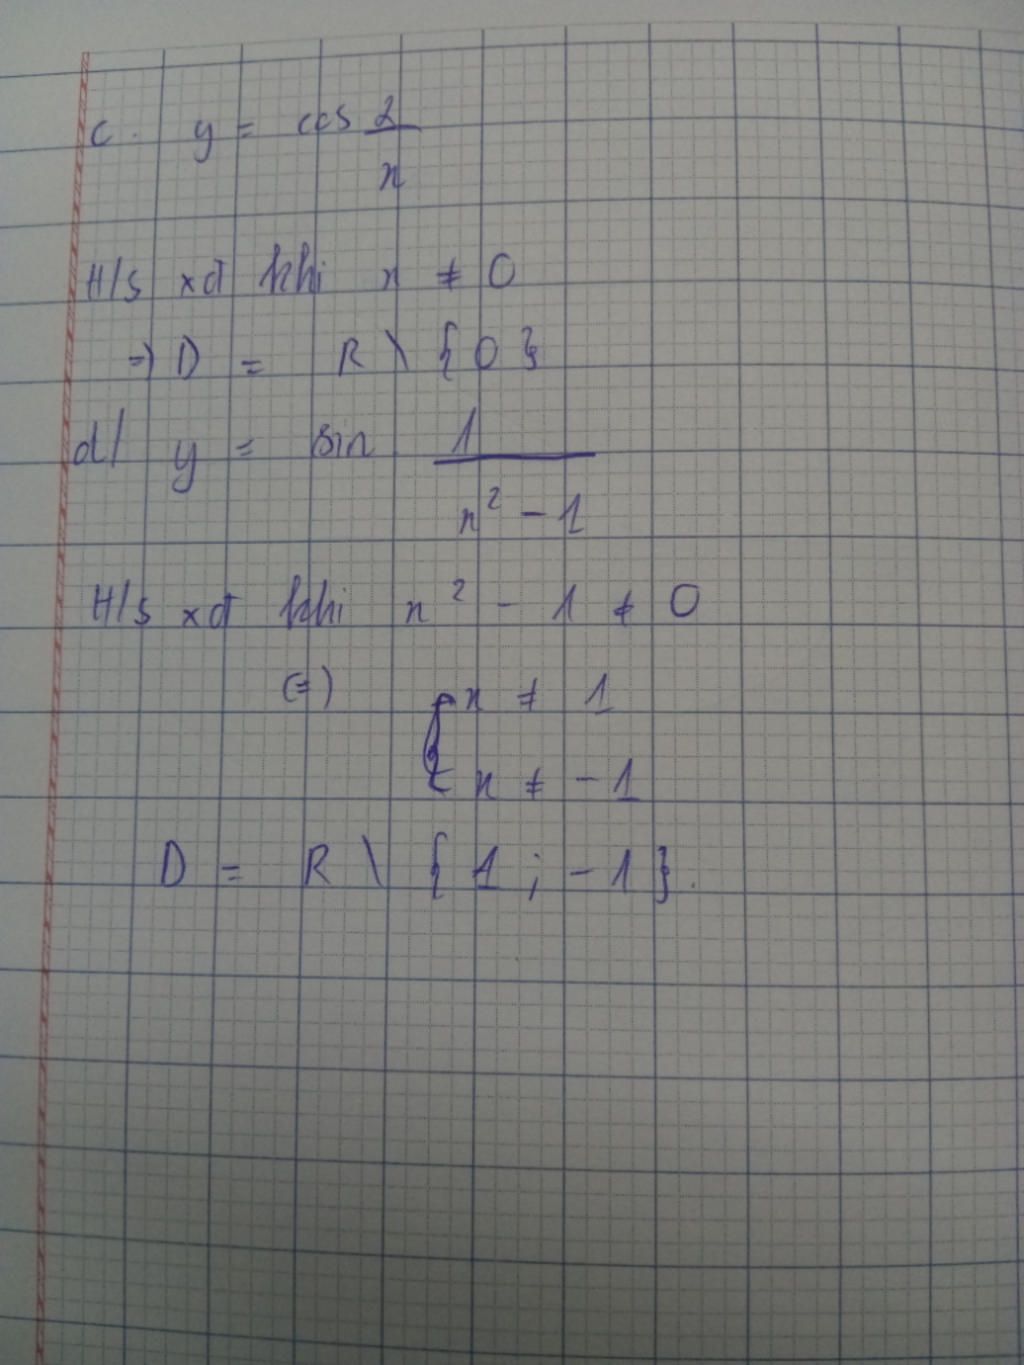 c. y = cos 2/x
H/s xđ khi x ≠ 0
=> D = R \ { 0 }
d/ y = sin 1/(x² - 1)
H/s xđ khi x² - 1 ≠ 0
<=> { x ≠ 1
x ≠ -1
D = R \ { 1 ; -1 }.